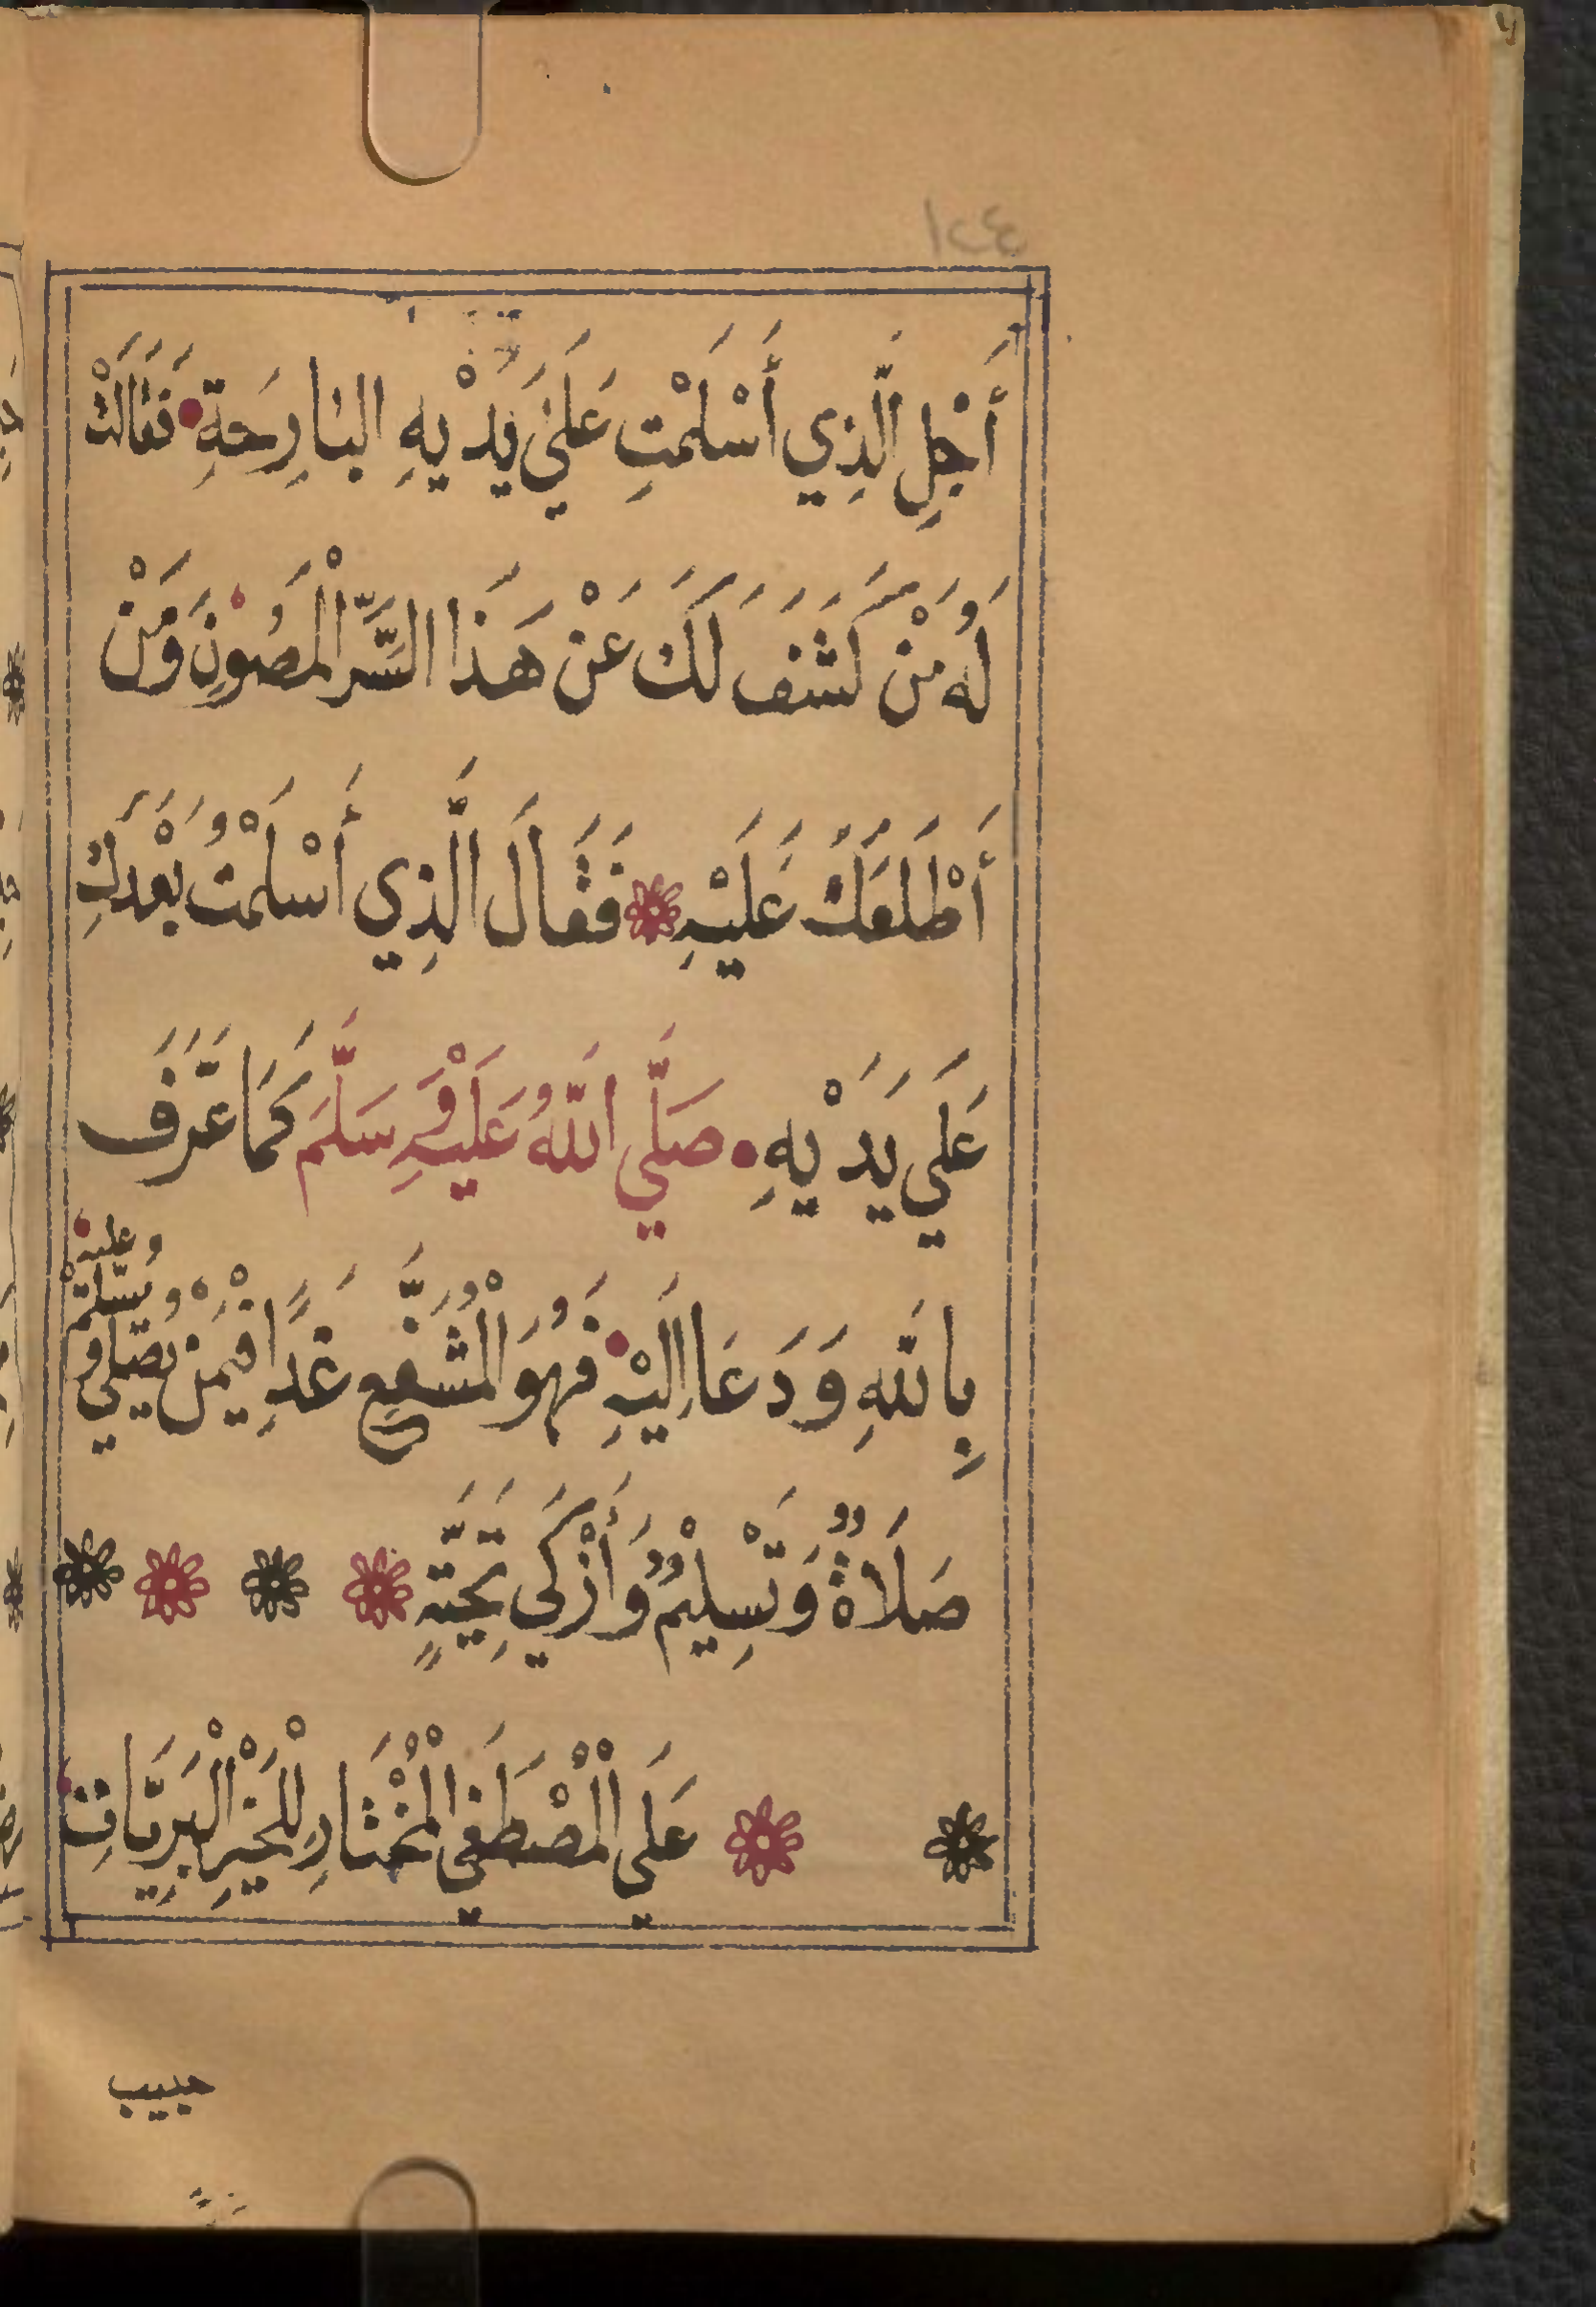 ١٢٤
أَجْلِ الَّذِي أَسْلَمْتِ عَلَيَ يَدَيْهِ البَارِحَةِ فَقَالَتْ
لَهُ مَنْ كَشَفَ لَكَ عَنْ هَذَا السِّرِّ الْمَصُوْنِ وَمَنْ
أَطْلَعَكَ عَلَيْهِ فَقَالَ الَّذِي أَسْلَمْتُ بَعْدَكِ
عَلَي يَدَيْهِ صَلَّي اللَّهُ عَلَيْهِ وَسَلَّمَ كَمَا عَرَّفَ
بِاللَّهِ وَدَعَا إِلَيْهِ فَهُوَ الْمُشَفَّع غَدًا فِيْمَنْ يُصَلِّي وَيُسَلِّمُ عَلَيْهِ
صَلَاةٌ وَتَسْلِيْمٌ وَأَزْكَي تَحِيَّةٍ
عَلَي الْمُصْطَفَي الْمُخْتَارِ لِلْخَيْرِ الْبَرِيَّاتِ
حبيب